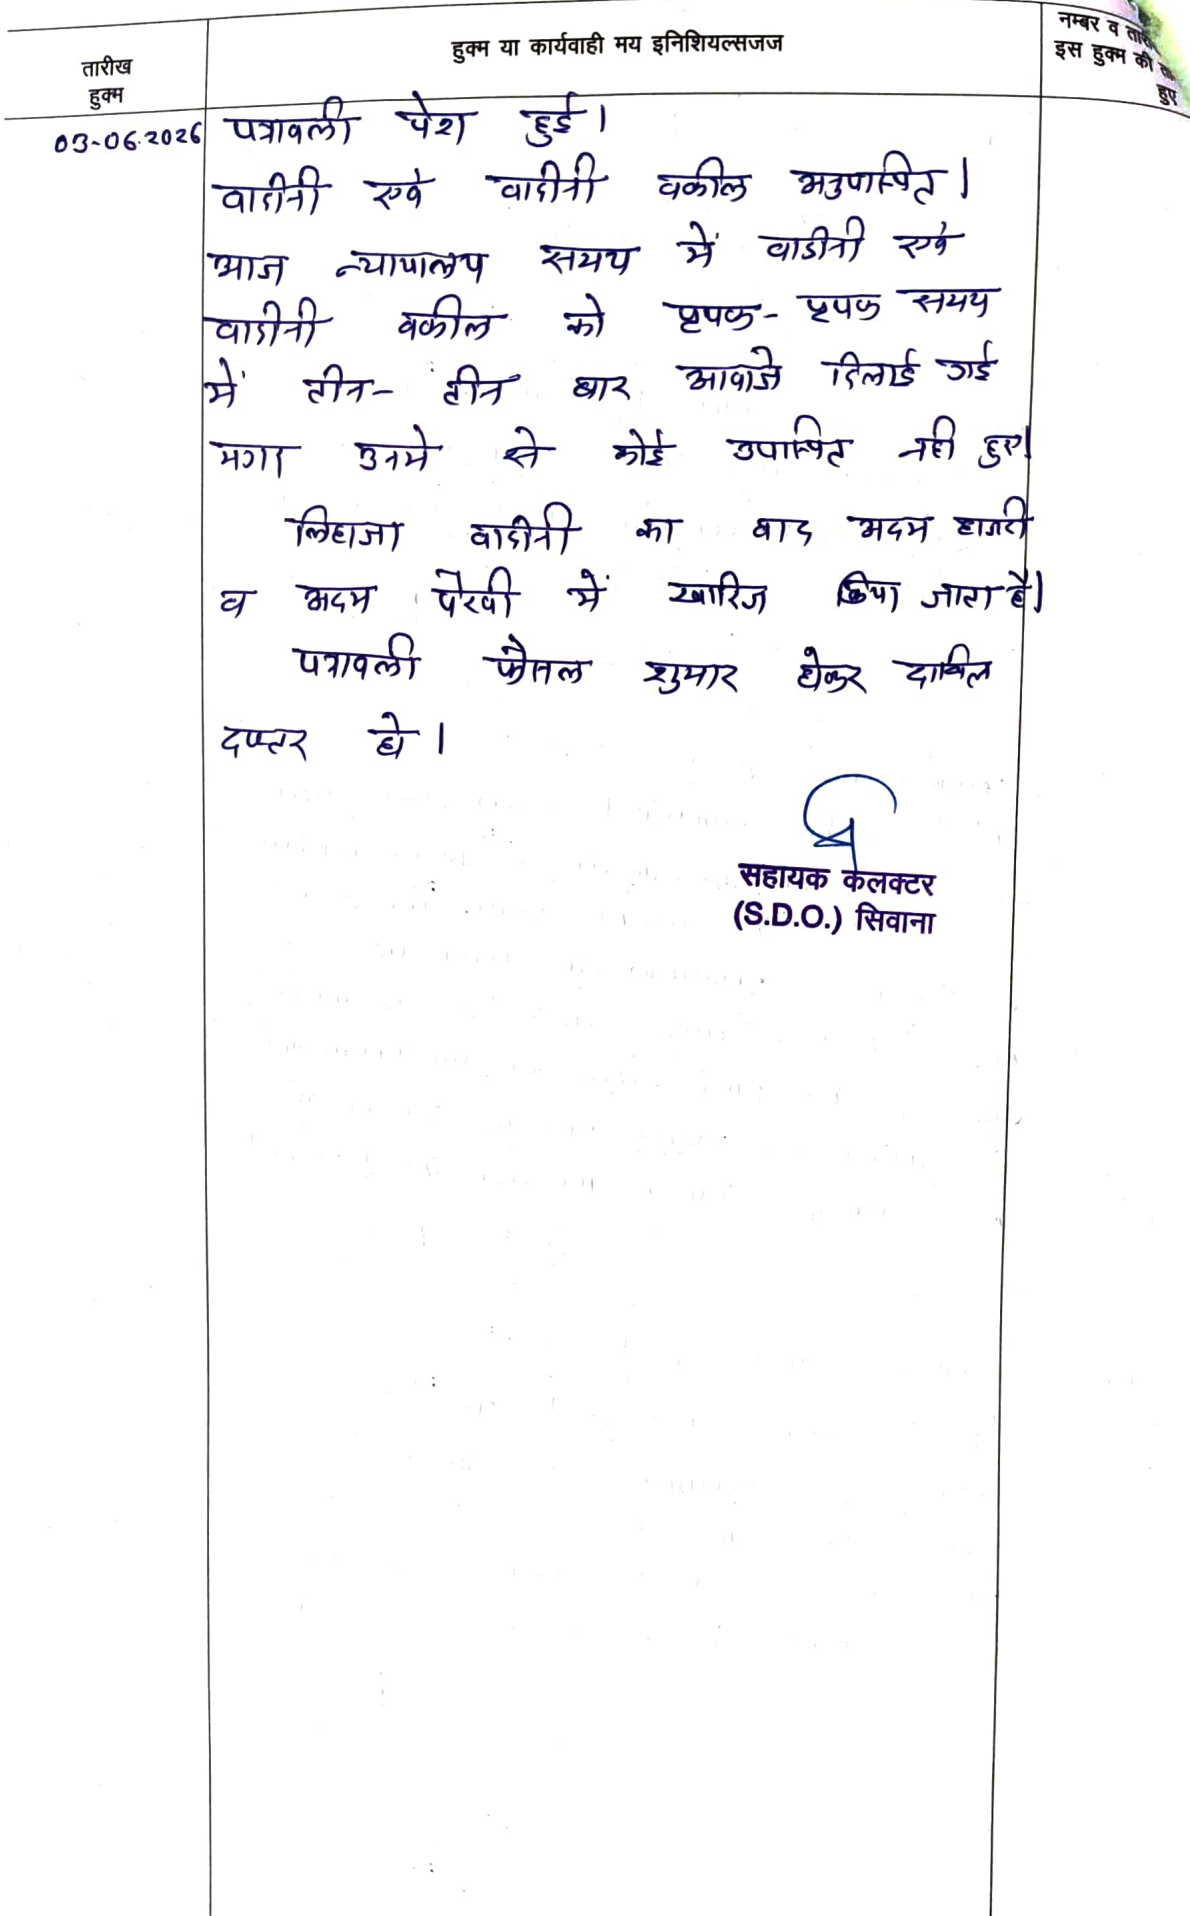 तारीख
हुक्म
हुक्म या कार्यवाही मय इनिशियल्सजज
नम्बर व
इस हुक्म की
हुए
03-06-2026 पत्रावली पेश हुई।
वादीनी एवं वादीनी वकील अनुपस्थित।
आज न्यायालय समय में वादीनी एवं
वादीनी वकील को पृथक- पृथक समय
में तीन- तीन बार आवाजे दिलाई गई
मगर उनमे से कोई उपस्थित नही हुए।
लिहाजा वादीनी का वाद अदम हाजरी
व अदम पैरवी में खारिज किया जाता है।
पत्रावली फैसल शुमार होकर दाखिल
दफ्तर हो।
सहायक कलक्टर
(S.D.O.) सिवाना